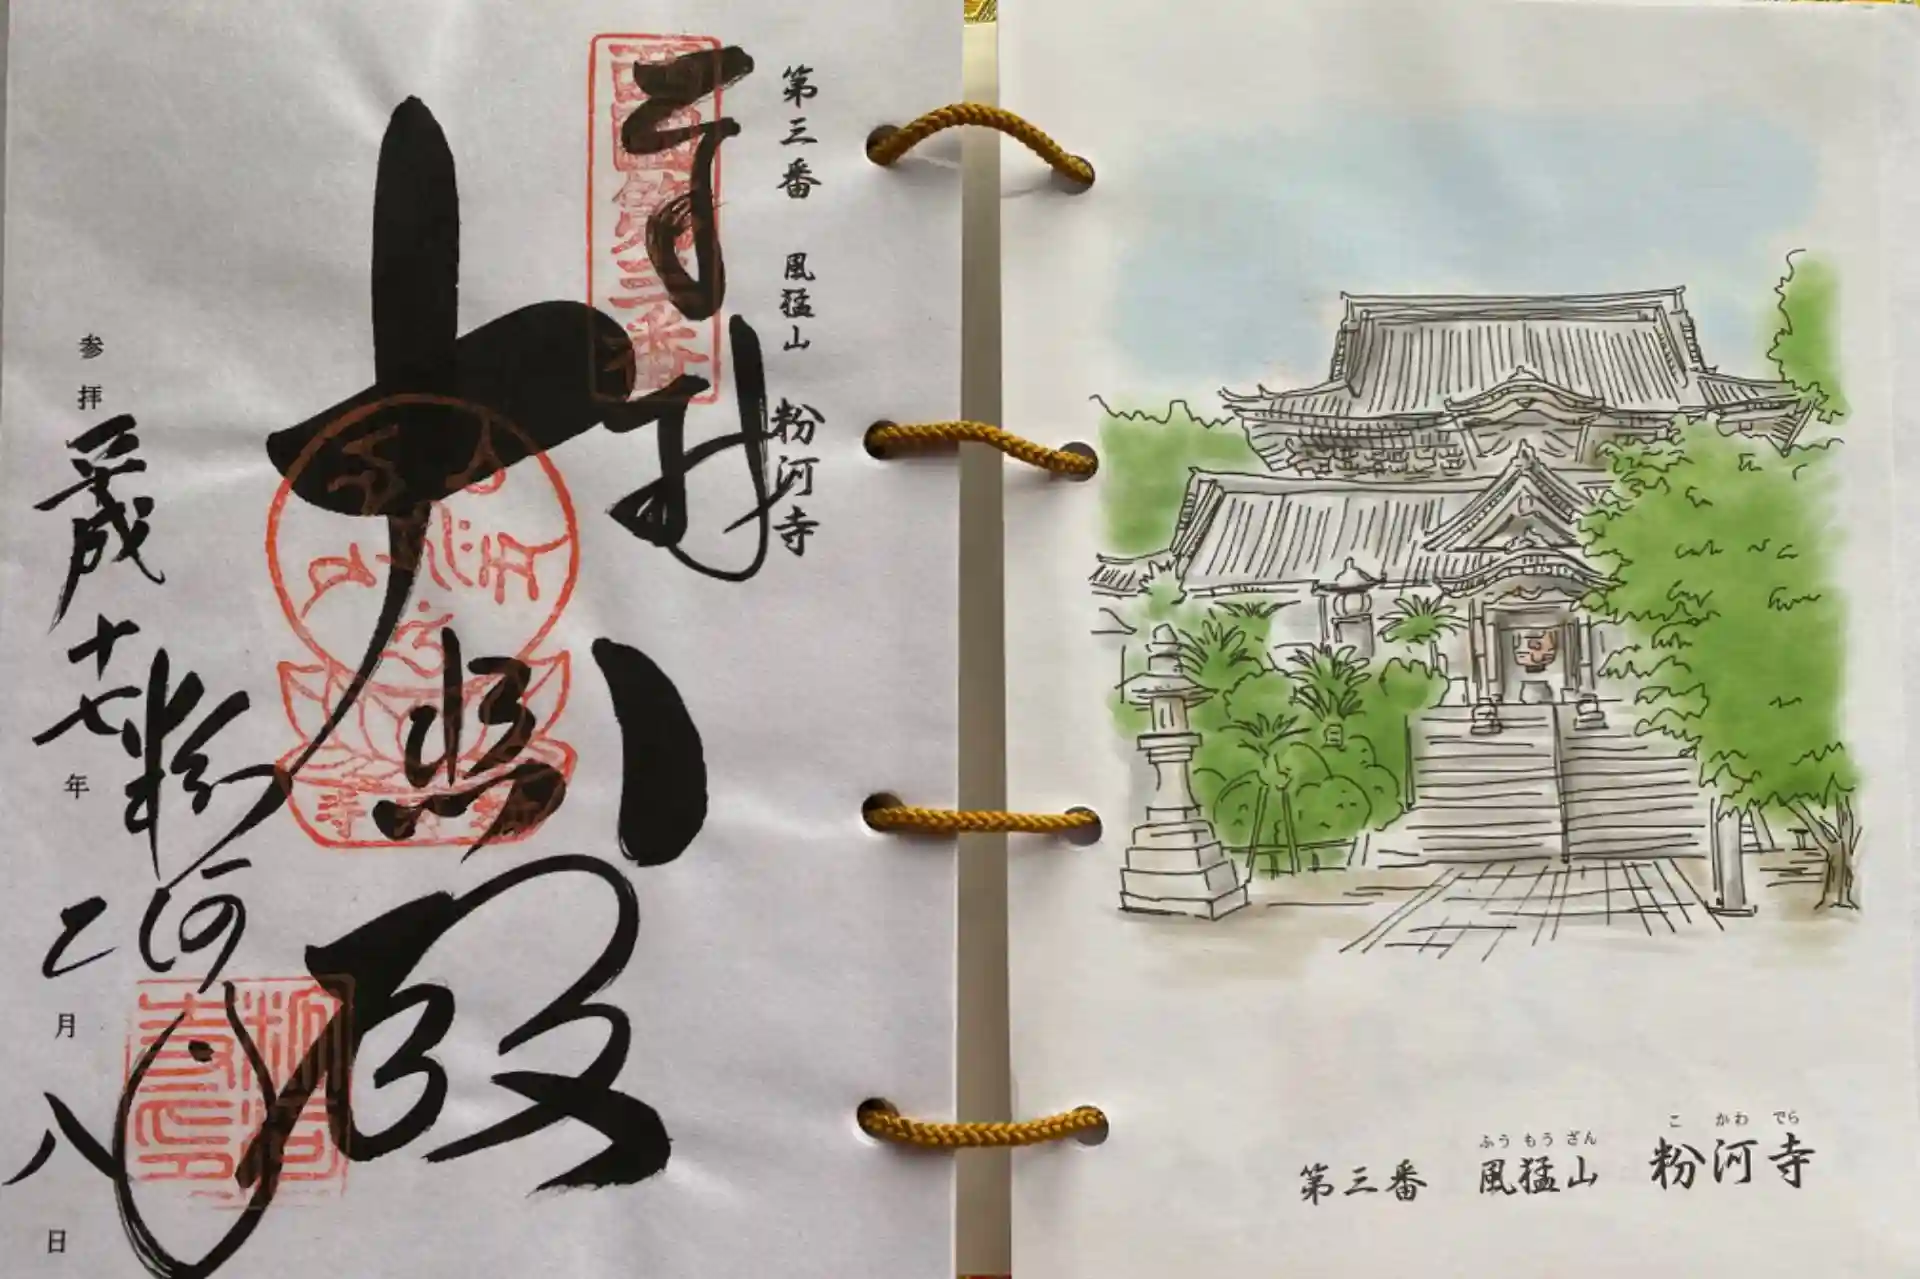 第三番 風猛山 粉河寺
奉拝
西国第三番
大悲殿
粉河寺
参拝 平成十七年二月八日
ふうもうざん こかわでら
第三番 風猛山 粉河寺